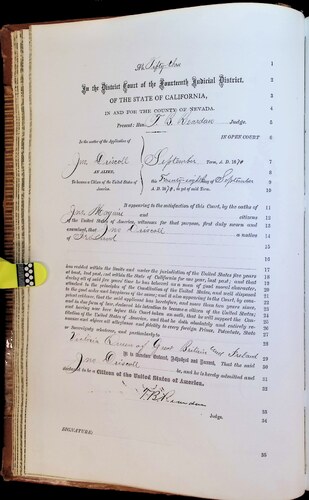 No Fifty One 1
In the District Court of the Fourteenth Judicial District, 2
OF THE STATE OF CALIFORNIA, 3
IN AND FOR THE COUNTY OF NEVADA. 4
Present: Hon. T. B. Reardan Judge. 5
IN OPEN COURT 6
In the matter of the Application of 7
Jno Driscoll September Term, A. D. 187
AN ALIEN,
To become a Citizen of the United States of America. this Twenty eighth day of September
A. D. 187 , as yet of said Term.
It appearing to the satisfaction of this Court, by the oaths of
Jno and citizens
of the United States of America, witnesses for that purpose, first duly sworn and
examined, that Jno Driscoll a native
of Ireland
has resided within the limits and under the jurisdiction of the United States five years
at least, last past, and within the State of California for one year, last past; and that
during all of said five years' time he has behaved as a man of good moral character,
attached to the principles of the Constitution of the United States, and well disposed
to the good order and happiness of the same; and it also appearing to the Court, by competent
proof/evidence, that the said applicant has heretofore, and more than two years since,
and in due form of law, declared his intention to become a citizen of the United States;
and having now here before this Court taken an oath, that he will support the Constitution
of the United States of America, and that he doth absolutely and entirely renounce
and abjure all allegiance and fidelity to every foreign Prince, Potentate, State
or Sovereignty whatever, and particularly to
Victoria Queen of Great Britain and Ireland
It is therefore Ordered, Adjudged and Decreed, That the said
Jno Driscoll be, and he is hereby admitted and
declared to be a Citizen of the United States of America.
T. B. Reardan
Judge.
SIGNATURE: